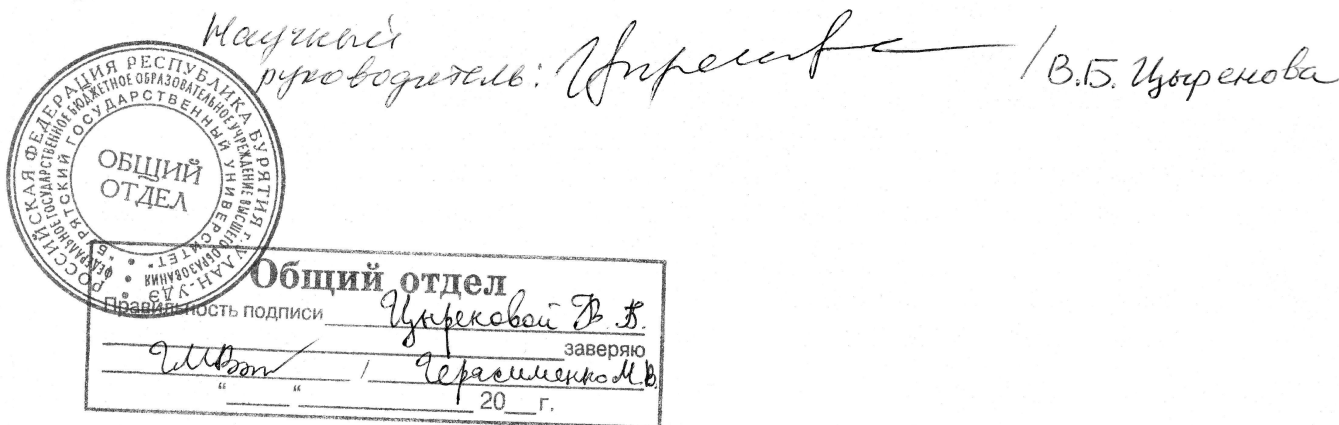 Научный
руководитель: Цыренова / В.Б. Цыренова
РОССИЙСКАЯ ФЕДЕРАЦИЯ РЕСПУБЛИКА БУРЯТИЯ г. УЛАН-УДЭ
ФЕДЕРАЛЬНОЕ ГОСУДАРСТВЕННОЕ БЮДЖЕТНОЕ ОБРАЗОВАТЕЛЬНОЕ УЧРЕЖДЕНИЕ ВЫСШЕГО ОБРАЗОВАНИЯ
"БУРЯТСКИЙ ГОСУДАРСТВЕННЫЙ УНИВЕРСИТЕТ"
ОБЩИЙ
ОТДЕЛ
Общий отдел
Правильность подписи Цыреновой В.Б.
заверяю
/ Герасименко М.В.
“ “ 20 г.